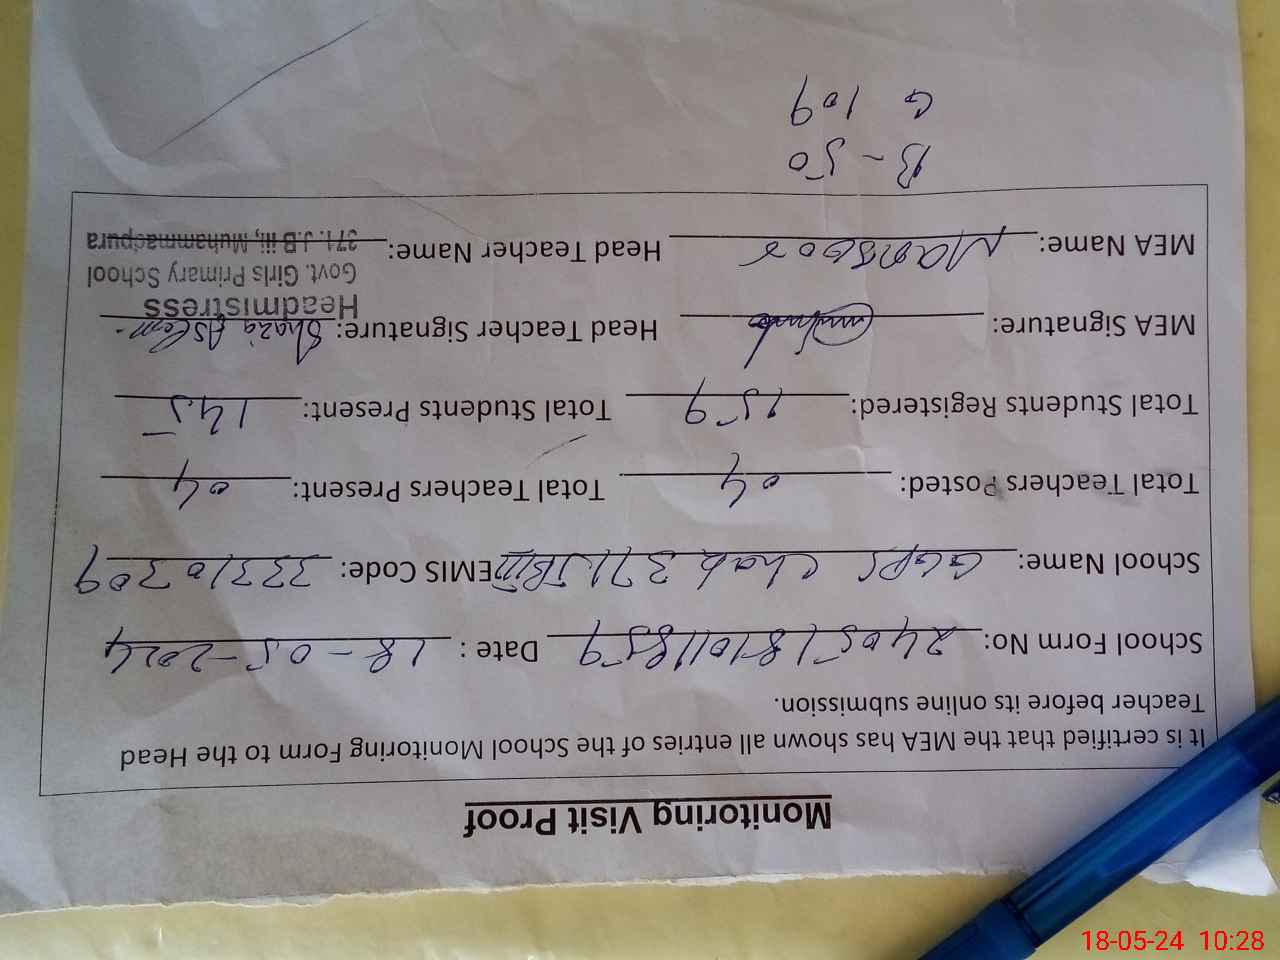 Monitoring Visit Proof
It is certified that the MEA has shown all entries of the School Monitoring Form to the Head
Teacher before its online submission.
School Form No: 24051810118559 Date : 18-05-2024
School Name: GGPS Chak 371 JB III EMIS Code: 33310309
Total Teachers Posted: 04 Total Teachers Present: 04
Total Students Registered: 159 Total Students Present: 145
MEA Signature: Head Teacher Signature: Shazia Aslam
Headmistress
Govt. Girls Primary School
MEA Name: Mansoor Head Teacher Name: 371. J.B iii, Muhammadpura
B - 50
G 109
18-05-24 10:28